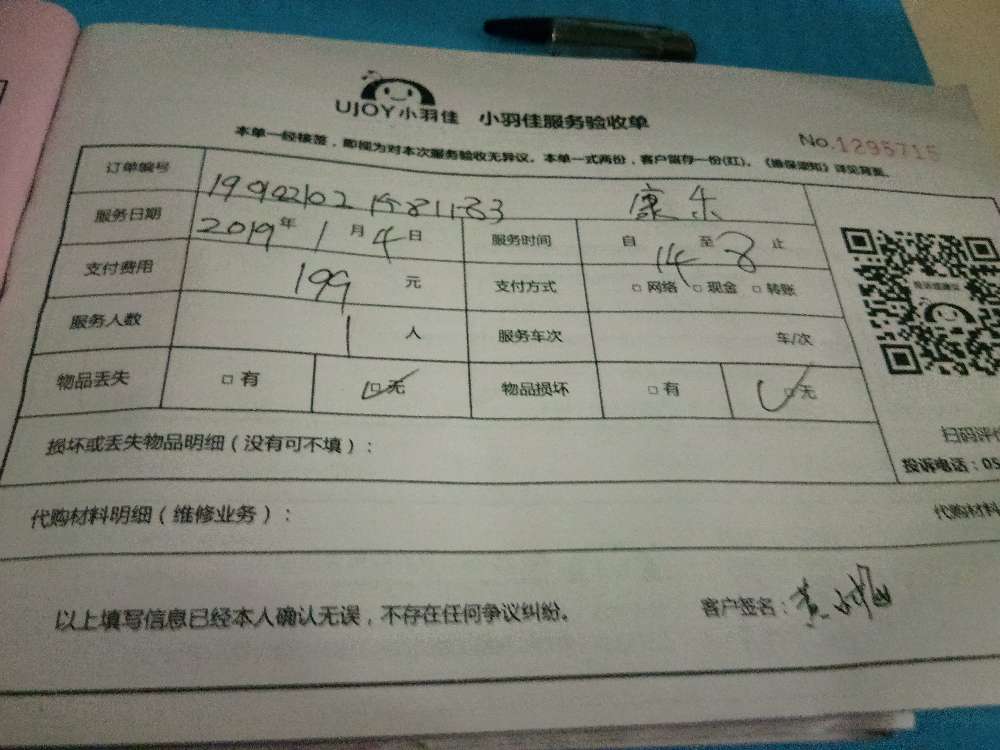 UJOY小羽佳 小羽佳服务验收单
No.1295715
本单一经接签，即视为对本次服务验收无异议。本单一式两份，客户留存一份(红)。《维保须知》详见背面。
订单编号 康乐
服务日期 2019年1月4日 服务时间 自14至 止
支付费用 199元 支付方式 □网络 □现金 □转账
服务人数 1人 服务车次 车/次
物品丢失 □有 □无 物品损坏 □有 □无
损坏或丢失物品明细（没有可不填）：
扫码评价
投诉电话：05
代购材料明细（维修业务）： 代购材料
以上填写信息已经本人确认无误，不存在任何争议纠纷。 客户签名：黄